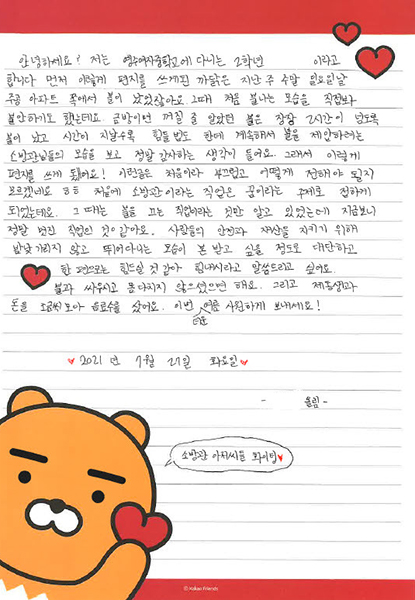 안녕하세요! 저는 연수여자중학교에 다니는 2학년 이라고
합니다 먼저 이렇게 편지를 쓰게된 까닭은 지난 주 주말 일요일날
주공 아파트 쪽에서 불이 났었잖아요. 그때 처음 불나는 모습을 직접봐
불안하기도 했는데요. 금방이면 꺼질 줄 알았던 불은 장장 2시간이 넘도록
불이 났고 시간이 지날수록 힘들법도 한데 계속해서 불을 제압하려는
소방관님들의 모습을 보고 정말 감사하는 생각이 들어요. 그래서 이렇게
편지를 쓰게 됐어요! 이런글은 처음이라 부끄럽고 어떻게 전해야 될지
모르겠네요 ㅎㅎ 처음에 소방관이라는 직업은 꿈이라는 주제로 접하게
되었는데요. 그 때는 불을 끄는 직업이라는 것만 알고 있었는데 지금보니
정말 멋진 직업인 것 같아요. 사람들의 안전과 재산을 지키기 위해
밤낮 가리지 않고 뛰어다니는 모습이 본 받고 싶을 정도로 대단하고
한 편으로는 힘드실 것 같아 힘내시라고 말씀드리고 싶어요.
불과 싸우시고 몸 다치지 않으셨으면 해요. 그리고 제 동생과
돈을 조금씩 모아 음료수를 샀어요. 이번 여름 시원하게 보내세요!
더운
2021년 7월 27일 화요일
- 올림 -
소방관 아저씨들 화이팅
© Kakao Friends